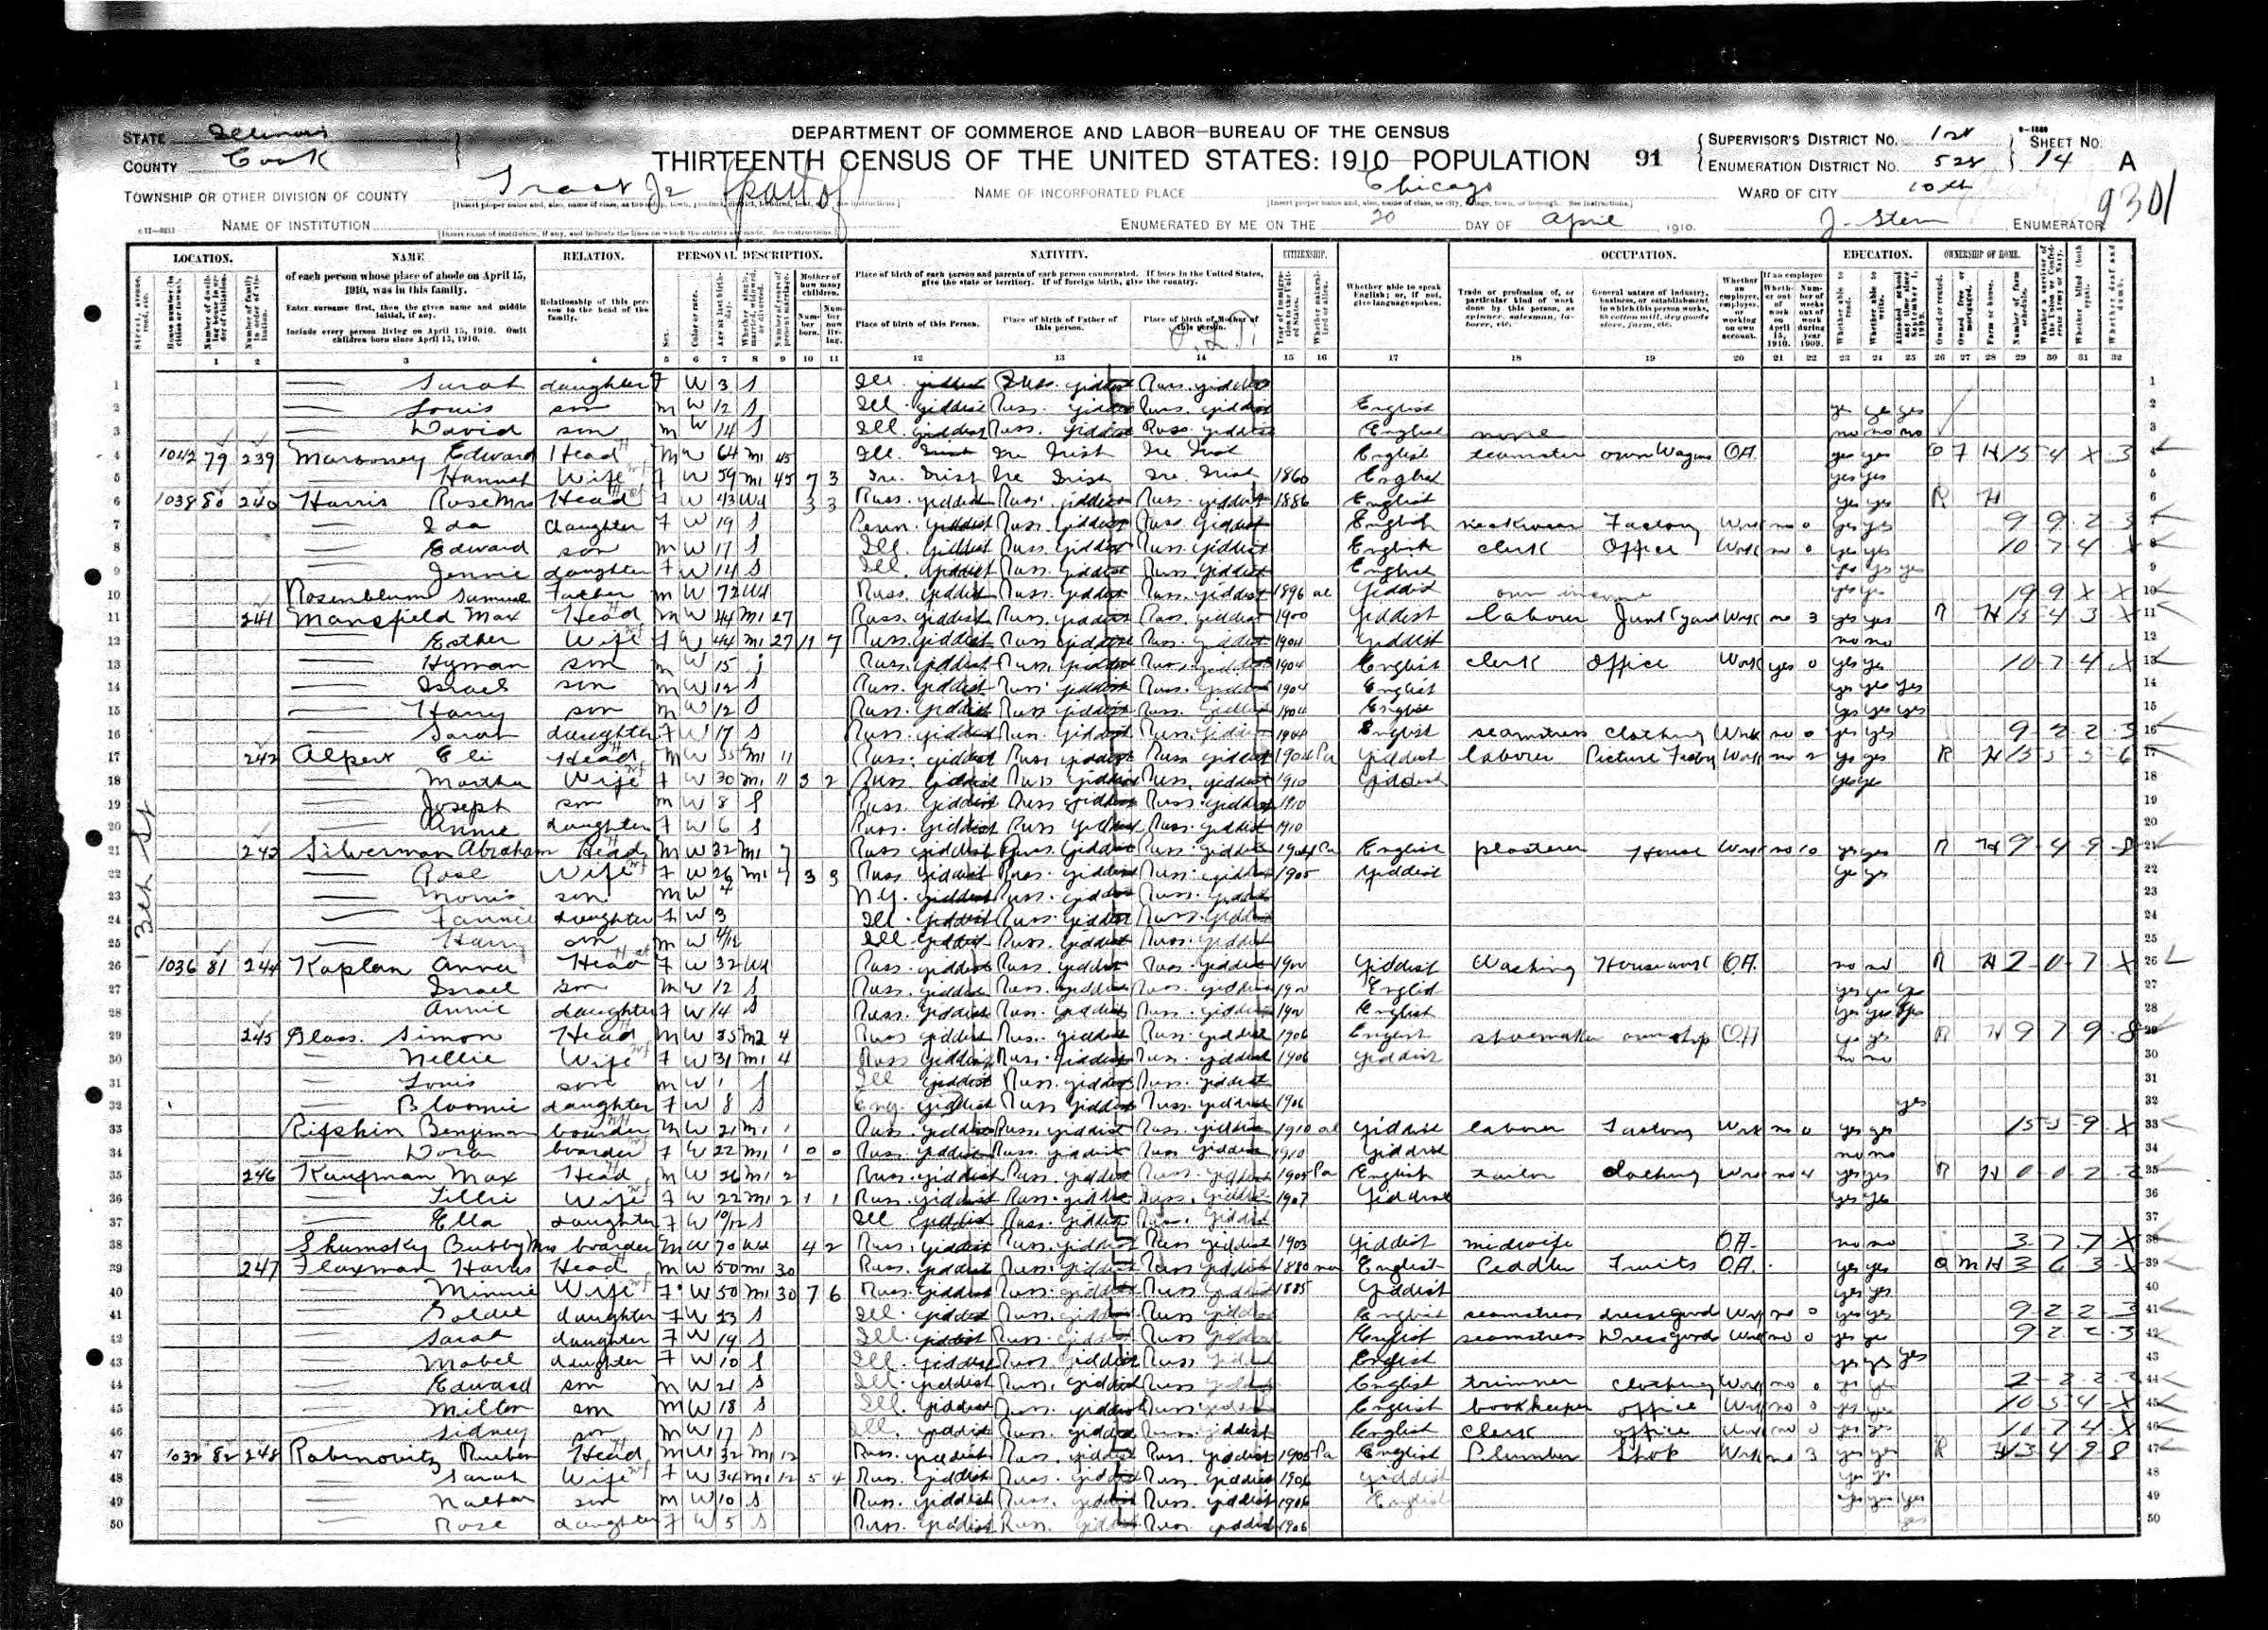 STATE Illinois
COUNTY Cook
DEPARTMENT OF COMMERCE AND LABOR—BUREAU OF THE CENSUS
THIRTEENTH CENSUS OF THE UNITED STATES: 1910—POPULATION 91
SUPERVISOR'S DISTRICT No. 1st SHEET No.
ENUMERATION DISTRICT No. 528 14 A
TOWNSHIP OR OTHER DIVISION OF COUNTY part of NAME OF INCORPORATED PLACE Chicago WARD OF CITY 10th
9301
NAME OF INSTITUTION ENUMERATED BY ME ON THE 20 DAY OF April 1910. J. Stern ENUMERATOR
LOCATION. NAME RELATION. PERSONAL DESCRIPTION. NATIVITY. CITIZENSHIP. OCCUPATION. EDUCATION. OWNERSHIP OF HOME.
of each person whose place of abode on April 15, 1910, was in this family.
Enter surname first, then the given name and middle initial, if any.
Include every person living on April 15, 1910. Omit children born since April 15, 1910.
Relationship of this person to the head of the family.
Place of birth of each person and parents of each person enumerated. If born in the United States, give the state or territory. If of foreign birth, give the country.
Place of birth of this Person. Place of birth of Father of this person. Place of birth of Mother of this person.
Whether able to speak English; or, if not, give language spoken.
1 2 3 4 5 6 7 8 9 10 11 12 13 14 15 16 17 18 19 20 21 22 23 24 25 26 27 28 29 30 31 32
1 Sarah daughter F W 3 S Ill. Yiddish Russ. Yiddish Russ. Yiddish 1
2 Louis son M W 12 S Ill. Yiddish Russ. Yiddish Russ. Yiddish English yes yes yes 2
3 David son M W 14 S Ill. Yiddish Russ. Yiddish Russ. Yiddish English none no no no 3
4 1042 79 239 Edward Head M W 64 M1 45 Ill. Irish Ire Irish Ire Irish English teamster own Wagon OA yes yes O F H 15 4 X 3 4
5 Hannah Wife F W 59 M1 45 7 3 Ire. Irish Ire Irish Ire. Irish 1860 English yes yes 5
6 1038 80 240 Harris Rose Mrs Head F W 43 Wd 3 3 Russ. Yiddish Russ. Yiddish Russ. Yiddish 1886 English yes yes R H 6
7 Ida daughter F W 19 S Penn. Yiddish Russ. Yiddish Russ. Yiddish English neckwear Factory Work no 0 yes yes 9 9 2 3 7
8 Edward son M W 17 S Ill. Yiddish Russ. Yiddish Russ. Yiddish English clerk Office Work no 0 yes yes 10 7 4 X 8
9 Jennie daughter F W 14 S Ill. Yiddish Russ. Yiddish Russ. Yiddish English yes yes yes 9
10 Rosenblum Samuel Father M W 72 Wd Russ. Yiddish Russ. Yiddish Russ. Yiddish 1896 al Yiddish own income yes yes 19 9 X X 10
11 241 Mansfield Max Head M W 44 M1 27 Russ. Yiddish Russ. Yiddish Russ. Yiddish 1900 Yiddish laborer Junk yard Work no 3 yes yes R H 15 4 3 X 11
12 Esther Wife F W 44 M1 27 11 7 Russ. Yiddish Russ Yiddish Russ. Yiddish 1904 Yiddish no no 12
13 Hyman son M W 15 Russ. Yiddish Russ. Yiddish Russ. Yiddish 1904 English clerk office Work yes 0 yes yes 10 7 4 X 13
14 Israel son M W 12 S Russ. Yiddish Russ Yiddish Russ. Yiddish 1904 English yes yes yes 14
15 Harry son M W 12 S Russ. Yiddish Russ Yiddish Russ. Yiddish 1904 English yes yes yes 15
16 Sarah daughter F W 17 S Russ. Yiddish Russ. Yiddish Russ. Yiddish 1904 English seamstress clothing Work no 0 yes yes 9 2 2 3 16
17 242 Alpert Eli Head M W 35 M1 11 Russ. Yiddish Russ Yiddish Russ Yiddish 1904 Pa Yiddish laborer Picture Factory Work no 2 yes yes R H 15 5 5 6 17
18 Martha Wife F W 30 M1 11 3 2 Russ Yiddish Russ Yiddish Russ. Yiddish 1910 Yiddish yes yes 18
19 Joseph son M W 8 S Russ. Yiddish Russ Yiddish Russ. Yiddish 1910 19
20 Annie daughter F W 6 S Russ. Yiddish Russ Yiddish Russ. Yiddish 1910 20
21 243 Silverman Abraham Head M W 32 M1 7 Russ Yiddish Russ. Yiddish Russ. Yiddish 1904 Pa English plasterer House Work no 10 yes yes R H 9 4 9 8 21
22 Rose Wife F W 26 M1 7 3 3 Russ Yiddish Russ. Yiddish Russ. Yiddish 1905 Yiddish yes yes 22
23 Morris son M W 4 N.Y. Yiddish Russ. Yiddish Russ. Yiddish 23
24 Fannie daughter F W 3 Ill. Yiddish Russ. Yiddish Russ. Yiddish 24
25 Harry son M W Ill Yiddish Russ. Yiddish Russ. Yiddish 25
26 1036 81 244 Kaplan Anna Head F W 32 Wd Russ. Yiddish Russ. Yiddish Russ Yiddish Yiddish Washing Housework OA. no no R H 2 0 7 X 26
27 Israel son M W 12 S Russ. Yiddish Russ. Yiddish Russ. Yiddish English yes yes yes 27
28 Annie daughter F W 14 S Russ. Yiddish Russ. Yiddish Russ. Yiddish English yes yes yes 28
29 245 Glass. Simon Head M W 35 M2 4 Russ Yiddish Russ. Yiddish Russ. Yiddish 1906 English shoemaker own shop OA yes yes R H 9 7 9 8 29
30 Nellie Wife F W 31 M1 4 Russ Yiddish Russ. Yiddish Russ. Yiddish 1906 Yiddish no no 30
31 Louis son M W 1 S Ill Yiddish Russ. Yiddish Russ. Yiddish 31
32 Bloomie daughter F W 8 S Eng. Yiddish Russ Yiddish Russ. Yiddish 1906 yes 32
33 Rifskin Benjiman boarder M W 21 M1 1 Russ. Yiddish Russ. Yiddish Russ. Yiddish 1910 al Yiddish laborer Factory Work no 0 yes yes 15 5 9 X 33
34 Dora boarder F W 22 M1 1 0 0 Russ. Yiddish Russ. Yiddish Russ Yiddish 1910 Yiddish no no 34
35 246 Kaufman Max Head M W 26 M1 2 Russ. Yiddish Russ. Yiddish Russ. Yiddish 1905 Pa English tailor clothing Work no 4 yes yes R H 0 0 2 2 35
36 Tillie Wife F W 22 M1 2 1 1 Russ. Yiddish Russ. Yiddish Russ. Yiddish 1907 Yiddish yes yes 36
37 Ella daughter F W 10/12 S Ill Yiddish Russ. Yiddish Russ. Yiddish 37
38 Shumsky Bubby Mrs boarder W 70 Wd 4 2 Russ. Yiddish Russ. Yiddish Russ Yiddish 1903 Yiddish midwife OA. no no 3 7 7 X 38
39 247 Flaxman Harris Head M W 50 M1 30 Russ. Yiddish Russ. Yiddish Russ. Yiddish 1880 na English Peddler Fruits OA. yes yes O M H 3 6 3 X 39
40 Minnie Wife F W 50 M1 30 7 6 Russ. Yiddish Russ. Yiddish Russ. Yiddish 1885 Yiddish yes yes 40
41 Goldie daughter F W 23 S Ill. Yiddish Russ. Yiddish Russ Yiddish English seamstress dressgood Work no 0 yes yes 9 2 2 3 41
42 Sarah daughter F W 19 S Ill. Yiddish Russ. Yiddish Russ Yiddish English seamstress Dressgood Work no 0 yes yes 9 2 2 3 42
43 Mabel daughter F W 10 S Ill. Yiddish Russ. Yiddish Russ Yiddish English yes yes yes 43
44 Edward son M W 21 S Ill. Yiddish Russ. Yiddish Russ Yiddish English trimmer clothing Work no 0 yes yes 44
45 Milton son M W 18 S Ill. Yiddish Russ. Yiddish Russ Yiddish English bookkeeper office Work no 0 yes yes 10 5 4 X 45
46 Sidney son M W 17 S Ill. Yiddish Russ. Yiddish Russ. Yiddish English clerk office Work no 0 yes yes 7 4 X 46
47 1032 82 248 Rabinovitz Rueben Head M W 32 M1 12 Russ. Yiddish Russ. Yiddish Russ. Yiddish 1905 Pa English Plumber Shop Work no 3 yes yes R H 3 4 9 8 47
48 Sarah Wife F W 34 M1 12 5 4 Russ. Yiddish Russ. Yiddish Russ. Yiddish 1906 Yiddish yes yes 48
49 Nathan son M W 10 S Russ. Yiddish Russ. Yiddish Russ. Yiddish 1906 English yes yes yes 49
50 Rose daughter F W 5 S Russ. Yiddish Russ. Yiddish Russ. Yiddish 1906 yes 50
13th St